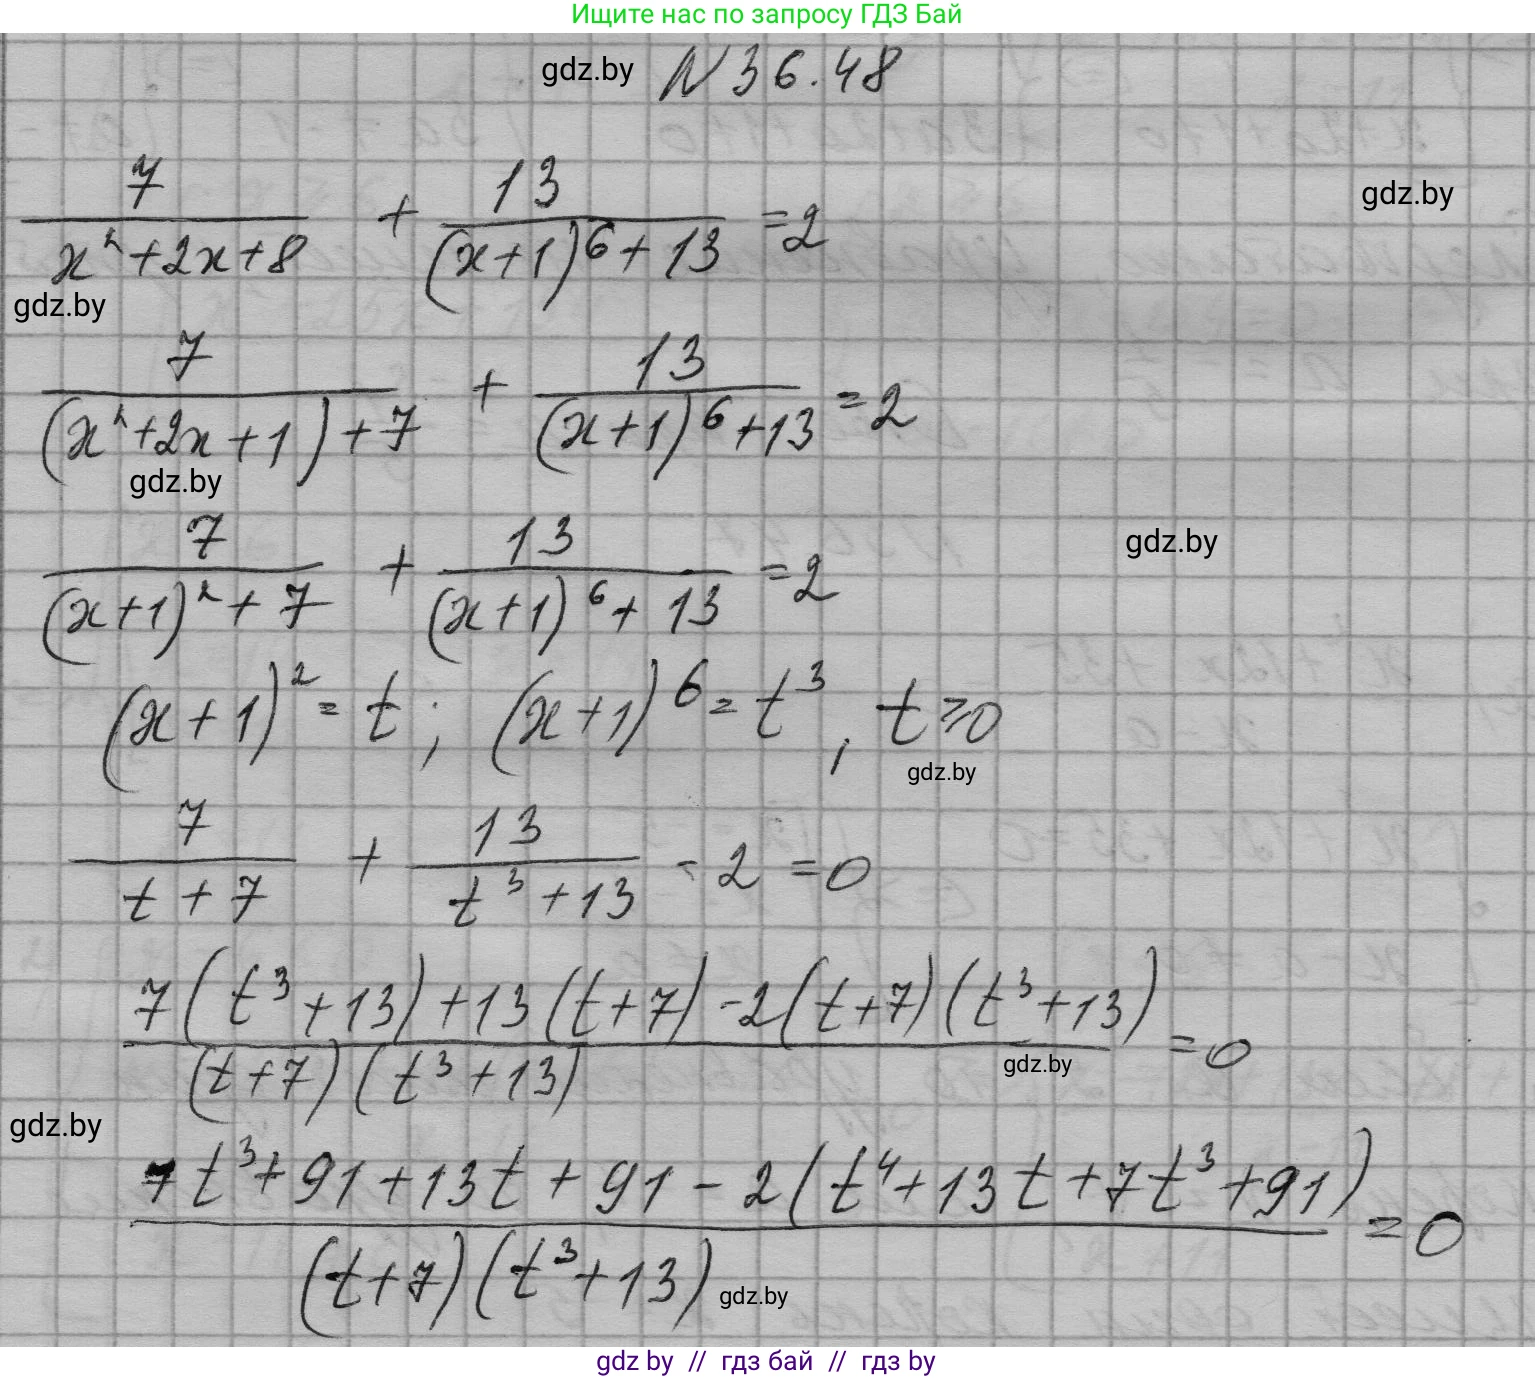 Ищите нас по запросу ГДЗ Бай
gdz.by N 36.48
7/(x²+2x+8) + 13/((x+1)⁶+13) = 2
gdz.by
gdz.by
7/((x²+2x+1)+7) + 13/((x+1)⁶+13) = 2
gdz.by
7/((x+1)²+7) + 13/((x+1)⁶+13) = 2
gdz.by
(x+1)² = t; (x+1)⁶ = t³, t ⩾ 0
gdz.by
7/(t+7) + 13/(t³+13) - 2 = 0
(7(t³+13)+13(t+7)-2(t+7)(t³+13))/((t+7)(t³+13)) = 0
gdz.by
gdz.by
(7t³+91+13t+91-2(t⁴+13t+7t³+91))/((t+7)(t³+13)) = 0
gdz.by
gdz by // гдз бай // гдз by